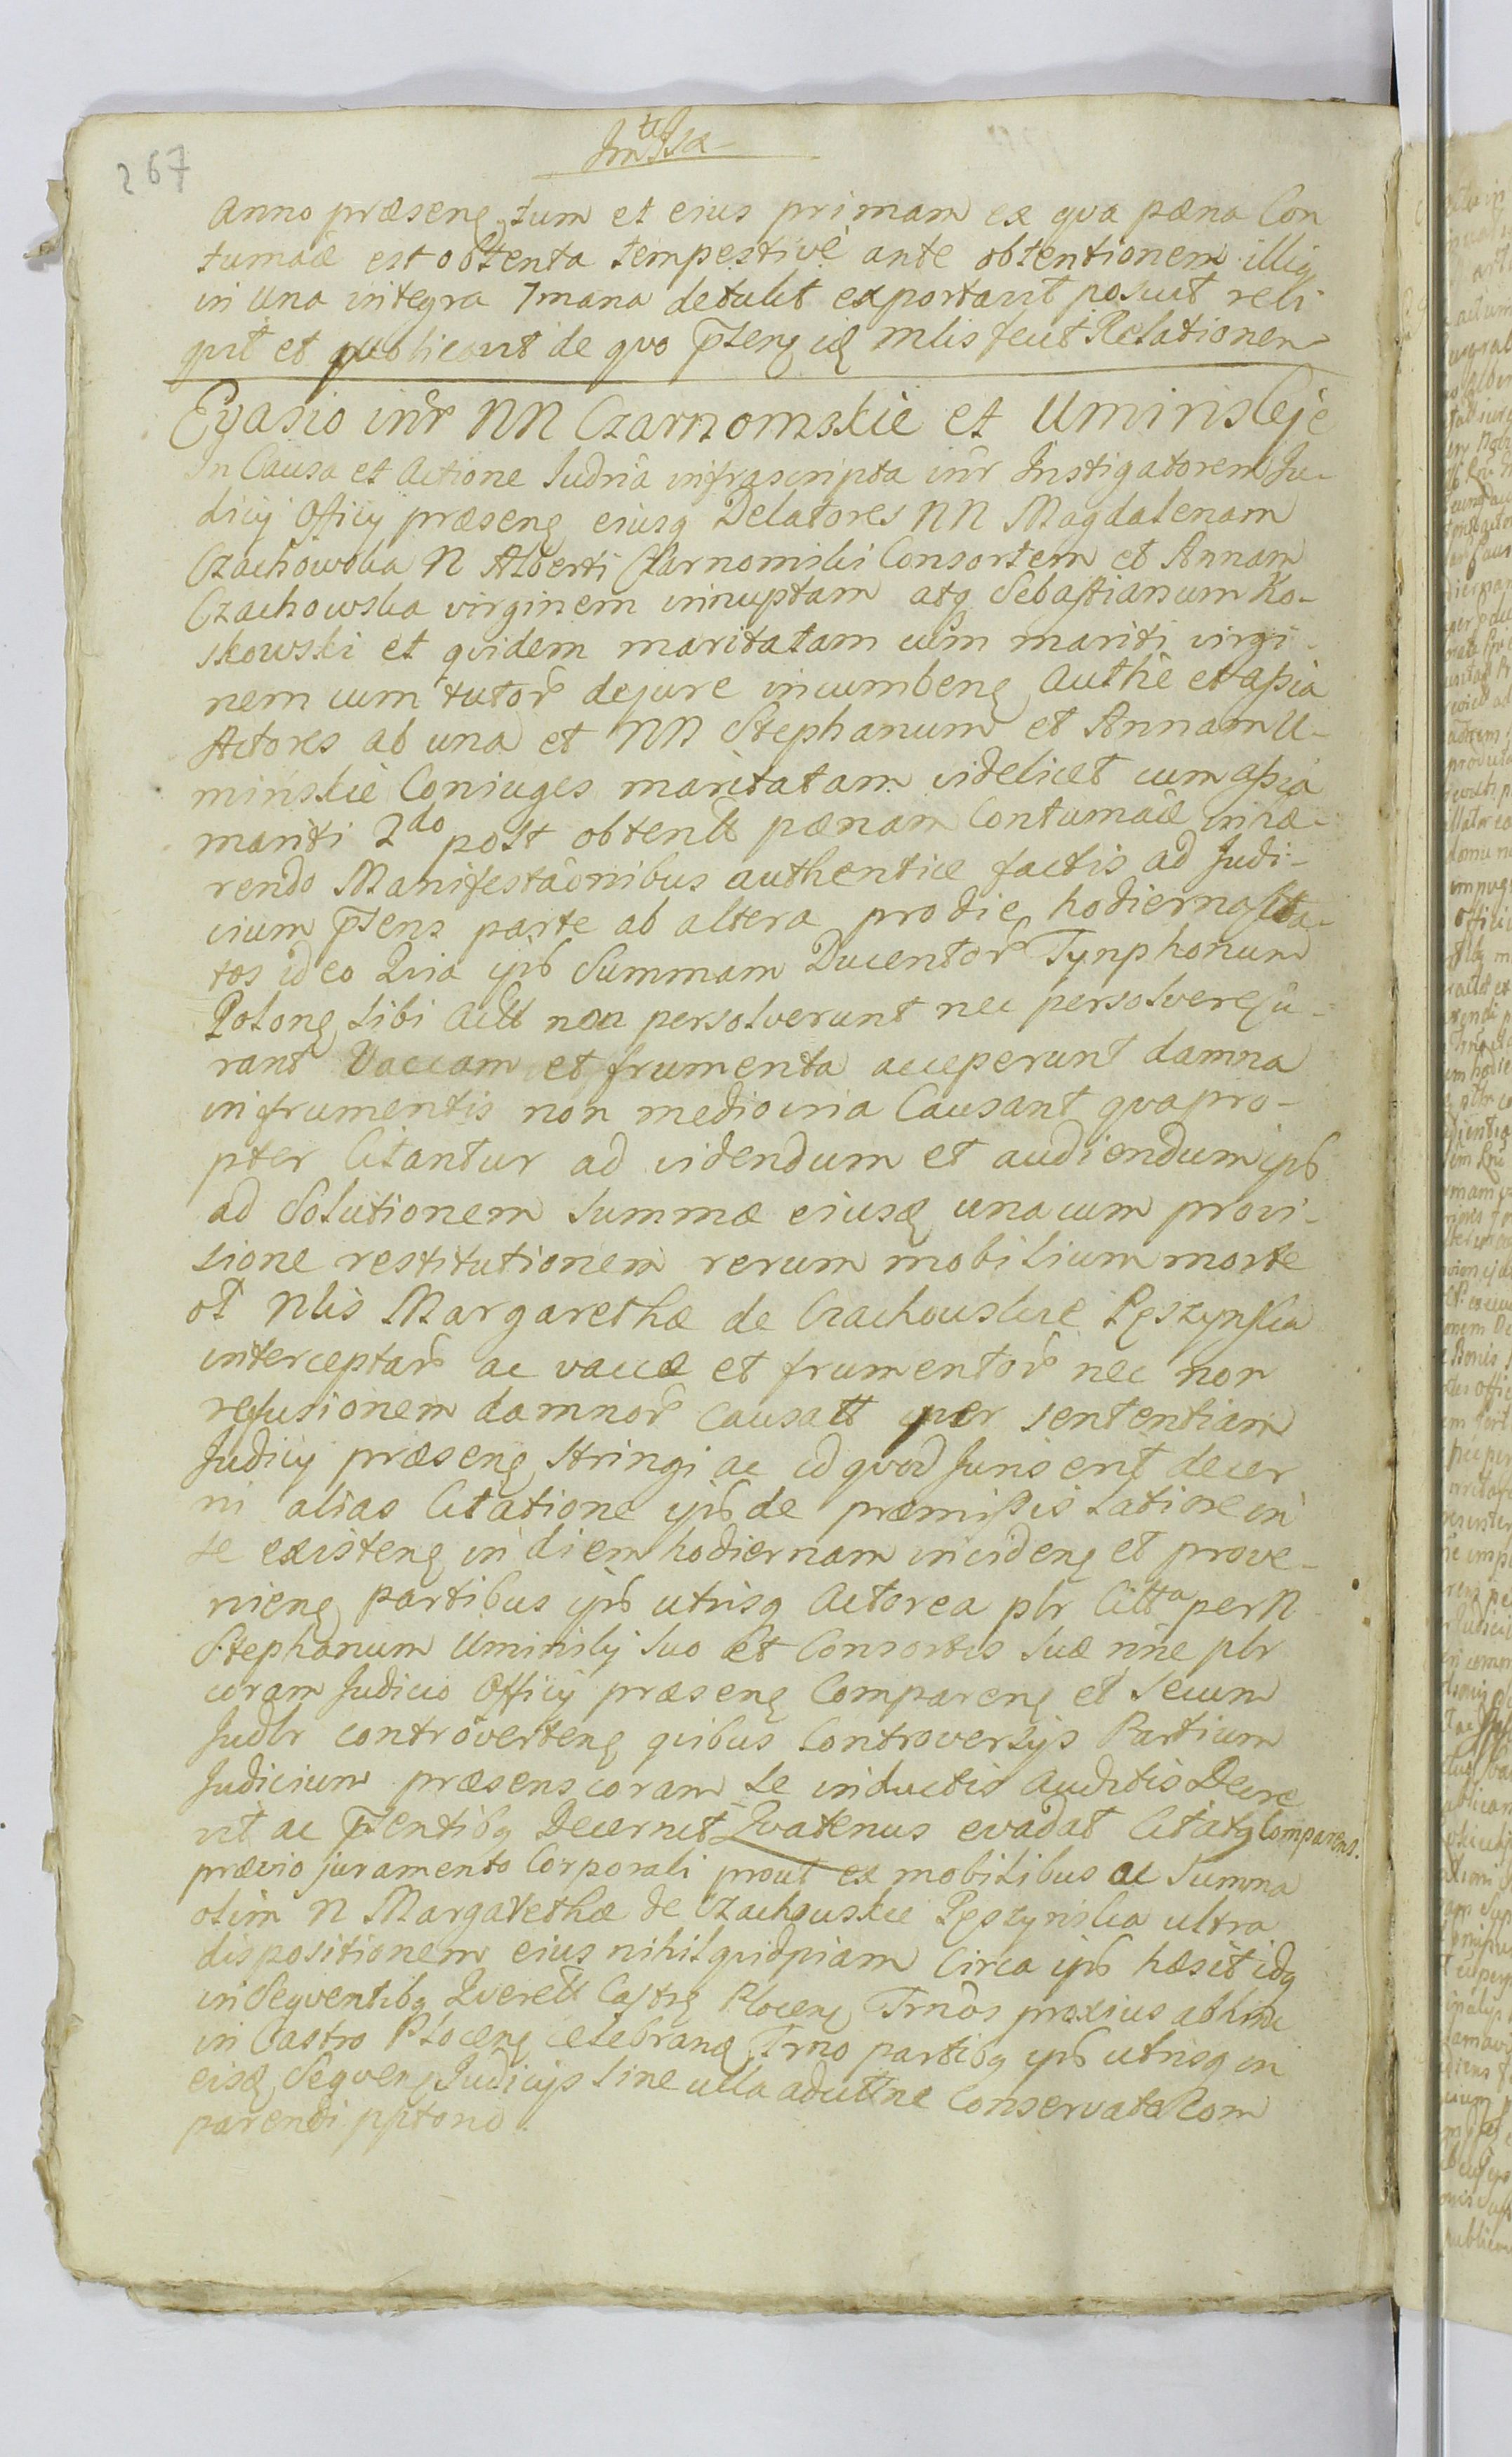 267
anno præseng tum et eius primam ex qva pæna Con
tumaciæ est obtenta tempestivè ante obtentionem illig
in una integra 7mana detulit exportavit posuit reli
qvit et publicavit de qvo pñterq idq mlis fecit Relationem
Evasio inȓ NN Czarnomskie et Uminskje
In Causa et Actione Iudria infrascripta inr Instigatorem Ju-
dicij Officij præseng eiusq Delatores NN Magdalenam
Czachowska N Alberti Czarnomski Consortem et Annam
Czachowska virginem innuptam atq Sebastianum Ko-
skowski et qvidem maritatam cum mariti virgi-
nem cum tutor dejure incumbeng Authe et assia
Actores ab una et NN Stephanum et Annam U-
minskie Coniuges maritatam videlicet cum assia
mariti 2do post obtentt pænam Contumaciæ inhæ-
rendo Manifestaonibus authentice factis ad Judi-
cium pñsens parte ab altera pro die hodierna cita-
tos ideo Qvia ipsi Summam Ducentor Tynphonum
Polong sibi Actt non persolverunt nec persolvere cu-
rant Vaccam et frumenta acceperunt damna
in frumentis non mediocria Causant qvapro-
pter Citantur ad videndum et audiendum ips
ad Solutionem summæ eiusdę una cum provi-
sione restitutionem rerum mobilium morte
ol Nlis Margarethæ de Czachouskie Pęszynska
interceptar ac vaccæ et frumentor nec non
refusionem damnor causatt per sententiam
Judicij præseng stringi ac id qvod Juris erit decer
ni alias Citatione ips de præmissis latiore in
se existeng in diem hodiernam incideng et prove-
nieng partibus ips utrisq Actorea plr Citta per N
Stephanum Uminskj suo et Consortis suæ nne plr
coram Judicio Officij præseng Compareng et secum
Judlr controverteng qvibus Controversijs Partium
Judicium præsens coram se inductis auditis Decre
vit ac pñtentibq Decernit Qvatenus evadat Citatq Comparens.
prævio juramento Corporali prout ex mobilibus ac Summa
olim N Margarethæ de Czachouskie Pęszynska ultra
dispositionem eius nihil qvidpiam Circa ips hæsit idq
in Seqventibq Qverell Castrg Ploceng Trnos proxius abhinc
in Castro Ploceng celebrand Trno partibq ips utrisq in
eisdę Seqveng Judicijs sine ulla aducttne Conservata Com
parendi pptono